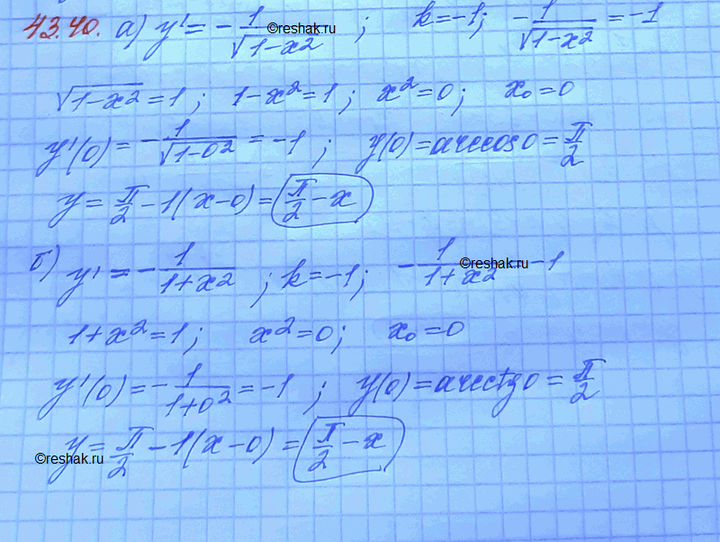 43.40. а) y' = - 1/√(1-x²) ; k=-1; - 1/√(1-x²) = -1
√(1-x²) = 1 ; 1-x² = 1 ; x² = 0 ; x₀ = 0
y'(0) = - 1/√(1-0²) = -1 ; y(0) = arccos0 = π/2
y = π/2 - 1(x-0) = π/2 - x
б) y' = - 1/(1+x²) ; k=-1; - 1/(1+x²) = -1
1+x² = 1 ; x² = 0 ; x₀ = 0
y'(0) = - 1/(1+0²) = -1 ; y(0) = arcctg0 = π/2
y = π/2 - 1(x-0) = π/2 - x
©reshak.ru
©reshak.ru
©reshak.ru